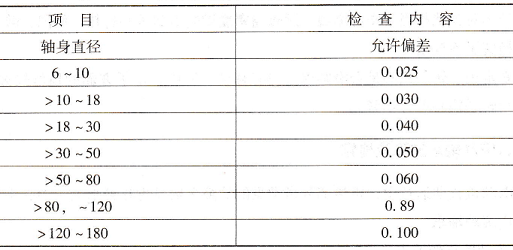 项 目 检 查 内 容
轴身直径 允许偏差
6～10 0.025
>10～18 0.030
>18～30 0.040
>30～50 0.050
>50～80 0.060
>80，～120 0.89
>120～180 0.100